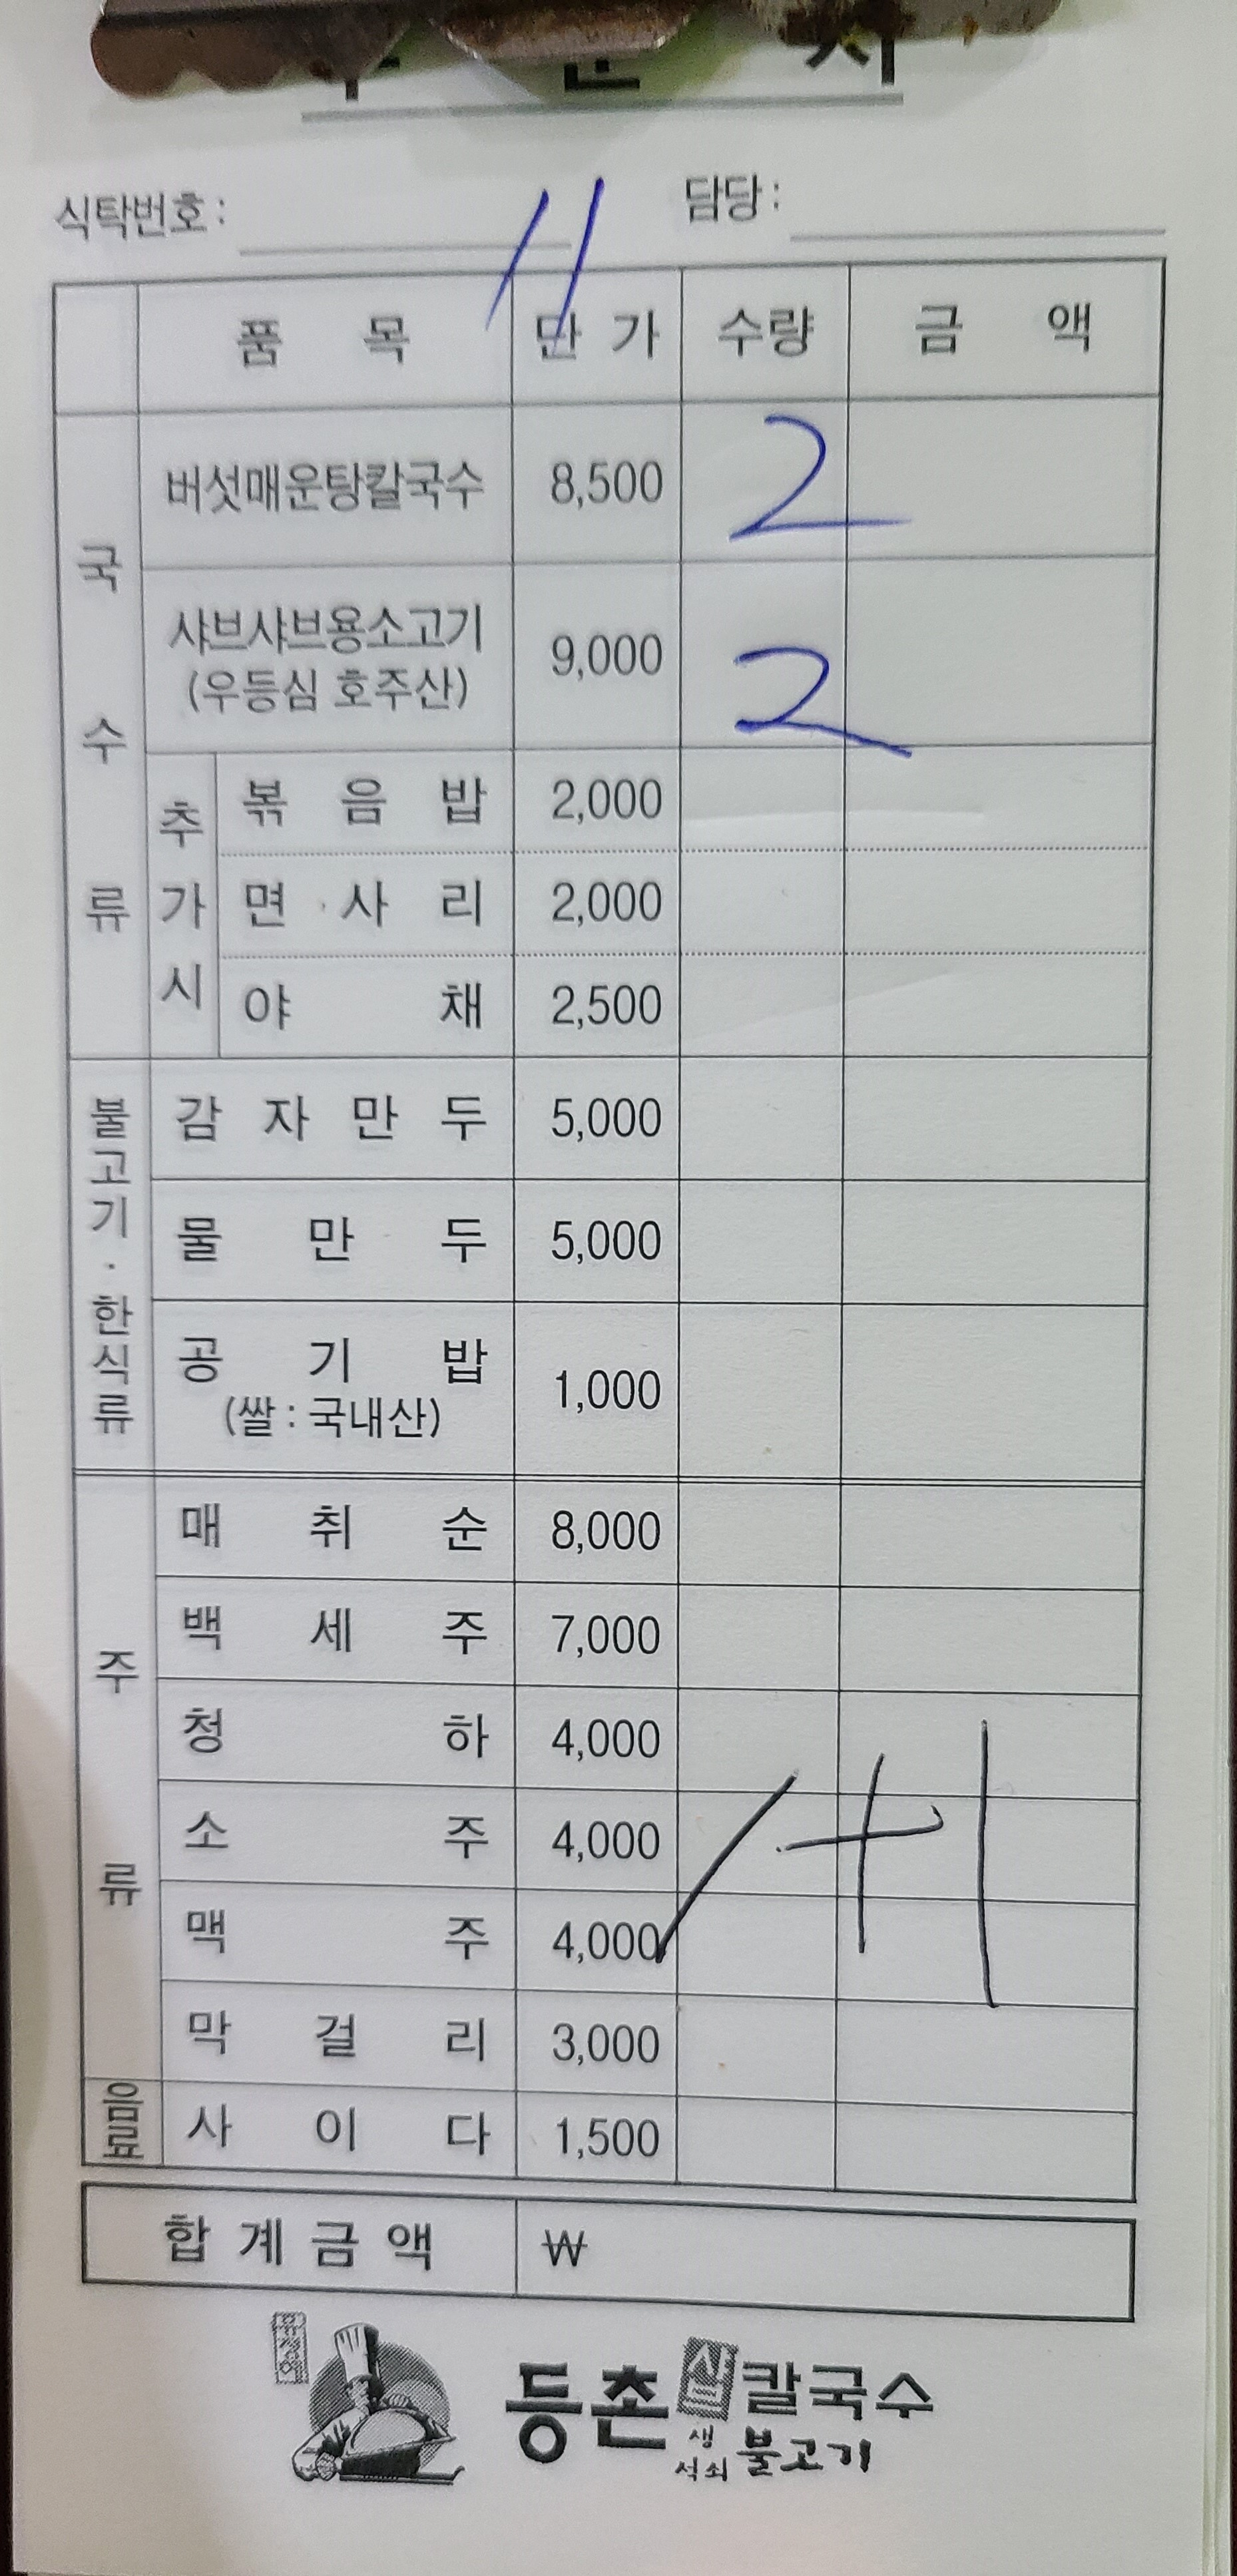 식탁번호 : 11 담당 :
품목 단가 수량 금액
국수류
버섯매운탕칼국수 8,500 2
샤브샤브용소고기 (우등심 호주산) 9,000 2
추가시
볶음밥 2,000
면사리 2,000
야채 2,500
불고기·한식류
감자만두 5,000
물만두 5,000
공기밥 (쌀 : 국내산) 1,000
주류
매취순 8,000
백세주 7,000
청하 4,000
소주 4,000
맥주 4,000
막걸리 3,000
음료
사이다 1,500
합계금액 ₩
등촌샤브칼국수
생석쇠불고기